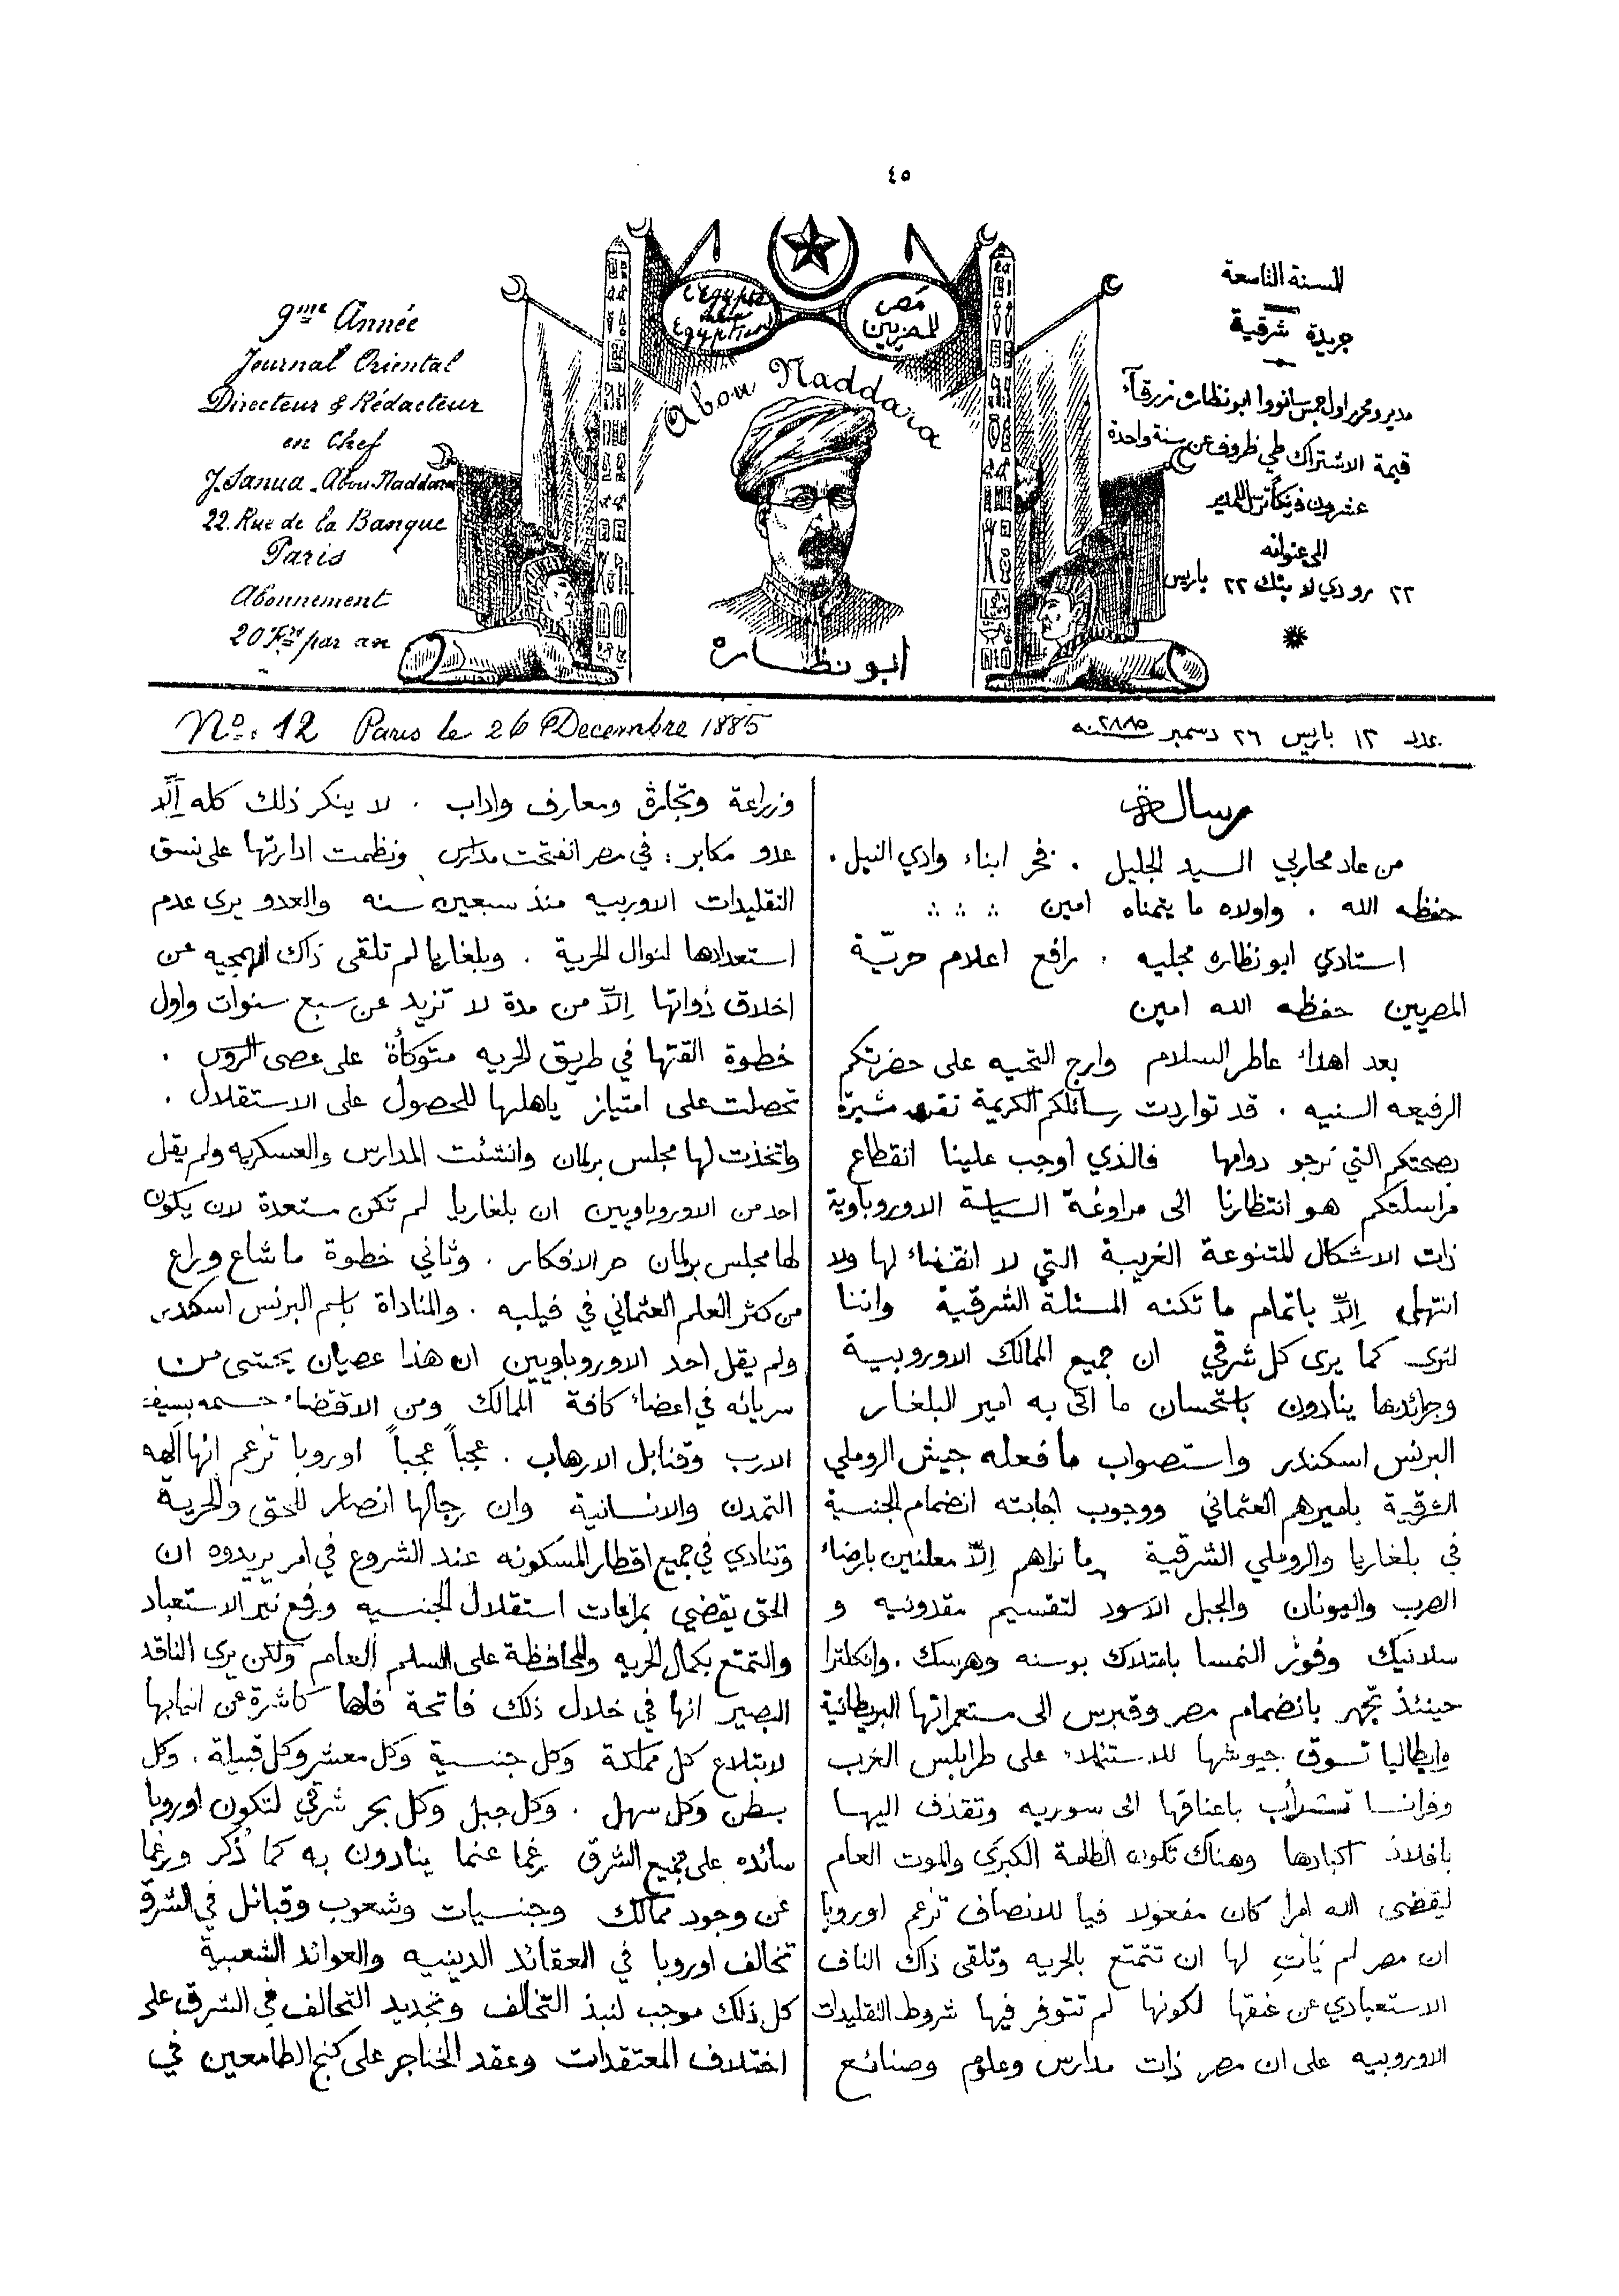 ٤٥
9me Année
Journal Oriental
Directeur & Rédacteur
en Chef
J. Sanua_Abou Naddara
22. Rue de la Banque
Paris
Abonnement
20 Frs par an
L'Egypte
Egyptiens
مصر
للمصريين
Abou Naddara
ابو نظاره
للسنة التاسعة
جريدة شرقية
مدير ومحرر اول جمس سانووا ابو نظاره زرقآء
قيمة الاشتراك طي ظروف عن سنة واحدة
عشرون فرنكا ترسل للمدير
الى عنوانه
٢٢ رو دي لا بنك ٢٢ باريس
No. 12 Paris le 26 Decembre 1885
عدد ١٢ باريس ٢٦ دسمبر سنه
رسالة
من عاد محاربي السيد الجليل . فخر ابناء وادي النيل .
حفظه الله . واولاه ما يتمناه امين
استادي ابو نظاره مجليه . رافع اعلام حريّة
المصريين حفظه الله امين
بعد اهداء عاطر السلام وارج التحيه على حضرتكم
الرفيعه السنيه . قد تواردت رسائلكم الكريمة مشيرة
بصحتكم التي نرجو دوامها فالذي اوجب علينا انقطاع
مراسلتكم هو انتظارنا الى مراوغة السياسة الاوروباوية
ذات الاشكال المتنوعة الغريبة التي لا انقضاء لها ولا
انتهى إلاّ باتمام ما تكنه المسئلة الشرقية واننا
لنرى كما يرى كل شرقي ان جميع الممالك الاوروبية
وجرائدها ينادون باستحسان ما اتى به امير البلغار
البرنس اسكندر واستصواب ما فعله جيش الروملي
الشرقية باميرهم العثماني ووجوب اجابته انضمام الجنسية
في بلغاريا والروملي الشرقية ما نراهم إلاّ معلنين بارضاء
الصرب واليونان والجبل الاسود لتقسيم مقدونيه و
سلانيك وفوز النمسا بامتلاك بوسنه وهرسك . وانكلترا
حينئذ تجهر بانضمام مصر وقبرس الى مستعمراتها البريطانية
وايطاليا تسوق جيوشها للاستئلاء على طرابلس الغرب
وفرانسا تشرأب باعناقها الى سوريه وتقذف اليها
بافلاذ اكبادها وهناك تكون الطامة الكبرى والموت العام
ليقضي الله امرا كان مفعولا فيا للانصاف تزعم اوروبا
ان مصر لم يأتِ لها ان تتمتع بالحريه وتلقى ذاك الناف
الاستعبادي عن عنقها لكونها لم تتوفر فيها شروط التقليدات
الاوروبيه على ان مصر ذات مدارس وعلوم وصنائع
وزراعة وتجارة ومعارف واداب . لا ينكر ذلك كله إلاّ
عدو مكابر : في مصر انفتحت مدارس ونظمت ادارتها على نسق
التقليدات الاوربيه منذ سبعين سنه والعدو يرى عدم
استعدادها لنوال الحرية . وبلغاريا لم تلقى ذاك الهمجيه عن
اخلاق ذواتها إلاّ من مدة لا تزيد عن سبع سنوات واول
خطوة القتها في طريق الحريه متوكأة على عصى الروس .
تحصلت على امتياز ياهلها للحصول على الاستقلال .
واتخذت لها مجلس برلمان وانشئت المدارس والعسكريه ولم يقل
احد من الاوروباويين ان بلغاريا لم تكن مستعدة لان يكون
لها مجلس برلمان حر الافكار . وثاني خطوة ما شاع وراع
من كثر العلم العثماني في فيلبه . والمناداة باسم البرنس اسكندر
ولم يقل احد الاوروباويين ان هذا عصيان يخشى من
سريانه في اعضاء كافة الممالك ومن الاقتضاء حسمه بسيف
الارب وقنابل الارهاب . عجباً عجباً اوروبا تزعم انها آلهة
التمدن والانسانية وان رجالها انصار للحق والحرية
وتنادي في جميع اقطار المسكونه عند الشروع في امر يريدوه ان
الحق يقضي بمراعات استقلال الجنسيه ورفع نير الاستعباد
والتمتع بكمال الحريه والمحافظة على السلم العام ولكن يرى الناقد
البصير انها في خلال ذلك فاتحة فاها كاشرة عن انيابها
لابتلاع كل مملكة وكل جنسية وكل معشر وكل قبيلة . وكل
بطن وكل سهل . وكل جبل وكل بحر شرقي لتكون اوروبا
سائده على جميع الشرق رغما عنما ينادون به كما ذُكر ورغما
عن وجود ممالك وجنسيات وشعوب وقبائل في الشرق
تخالف اوروبا في العقائد الدينيه والعوائد الشعبية
كل ذلك موجب لنبذ التخالف وتجديد التحالف في الشرق على
اختلاف المعتقدات وعقد الخناجر على كبح الطامعين في